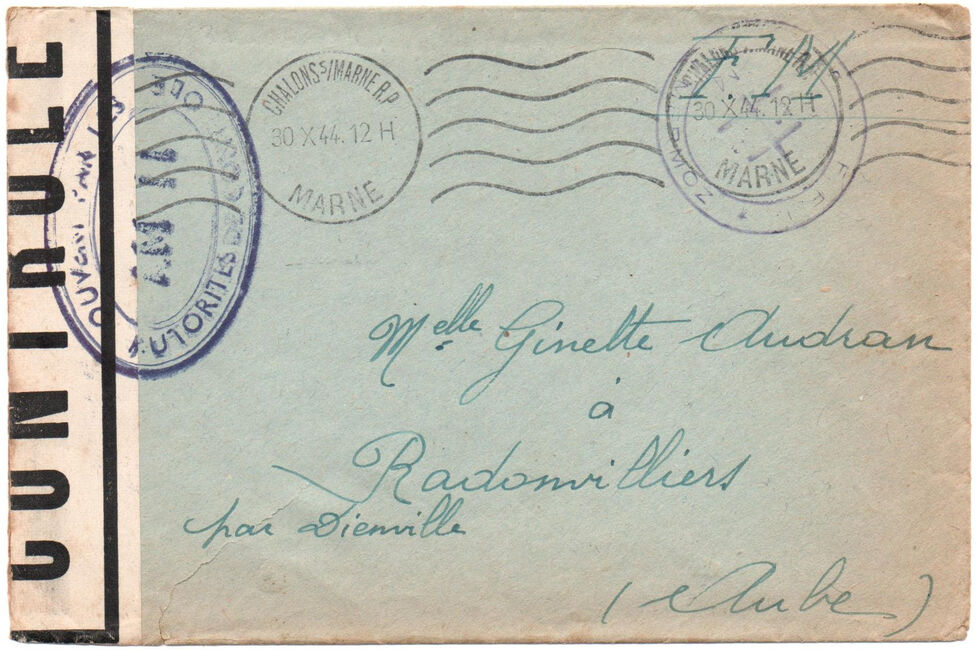 CONTROLE
OUVERT PAR LES
AUTORITES DE CONTROLE
CHALONS S/MARNE R.P
30 X 44. 12 H
MARNE
F M
30 X 44. 12 H
MARNE
Melle Ginette Audran
à
Radonvilliers
par Dienville
(Aube)